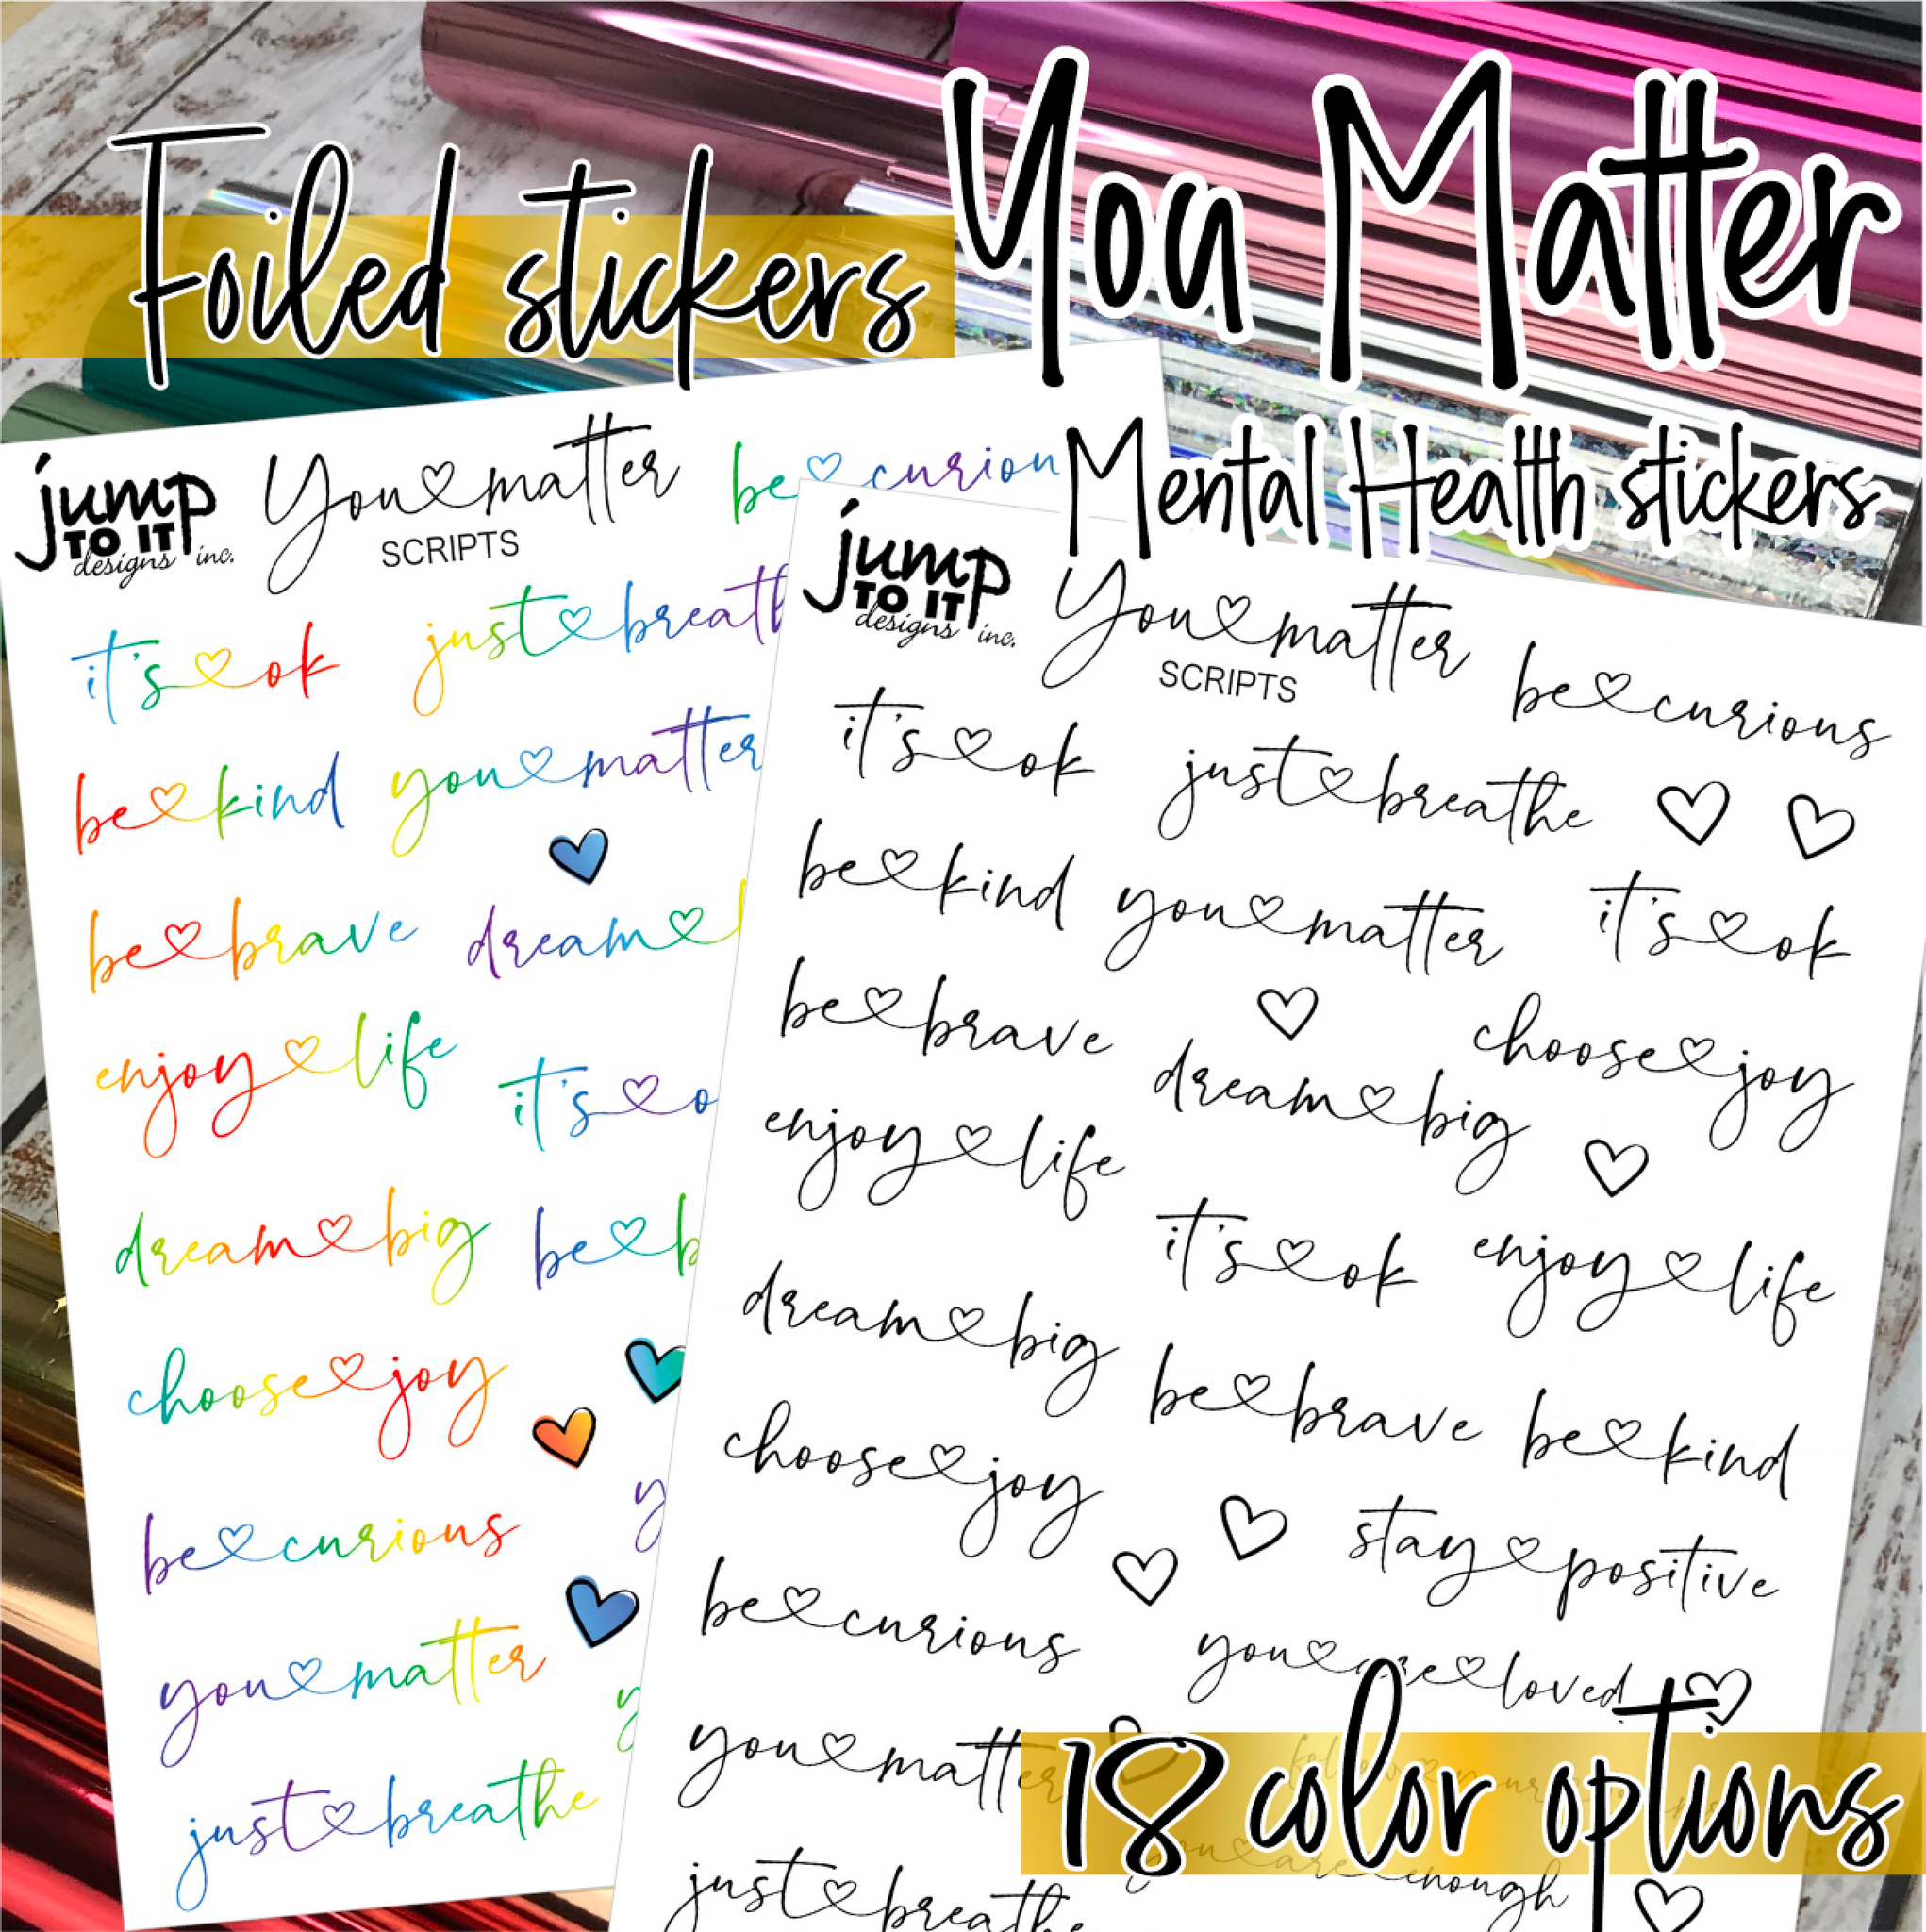 Foiled stickers
You Matter
Mental Health stickers
jump
TO IT
designs inc.
You matter
SCRIPTS
be curiou
it's ok
just breath
be kind
you matter
be brave
dream
enjoy life
it's o
dream big
be b
choose joy
be curious
y
you matter
y
just breathe
jump
TO IT
designs inc.
You matter
SCRIPTS
be curious
it's ok
just breathe
be kind
you matter
it's ok
be brave
choose joy
dream big
enjoy life
it's ok
enjoy life
dream big
be brave
be kind
choose joy
stay positive
be curious
you are loved
you matter
18 color options
you are enough
just breathe